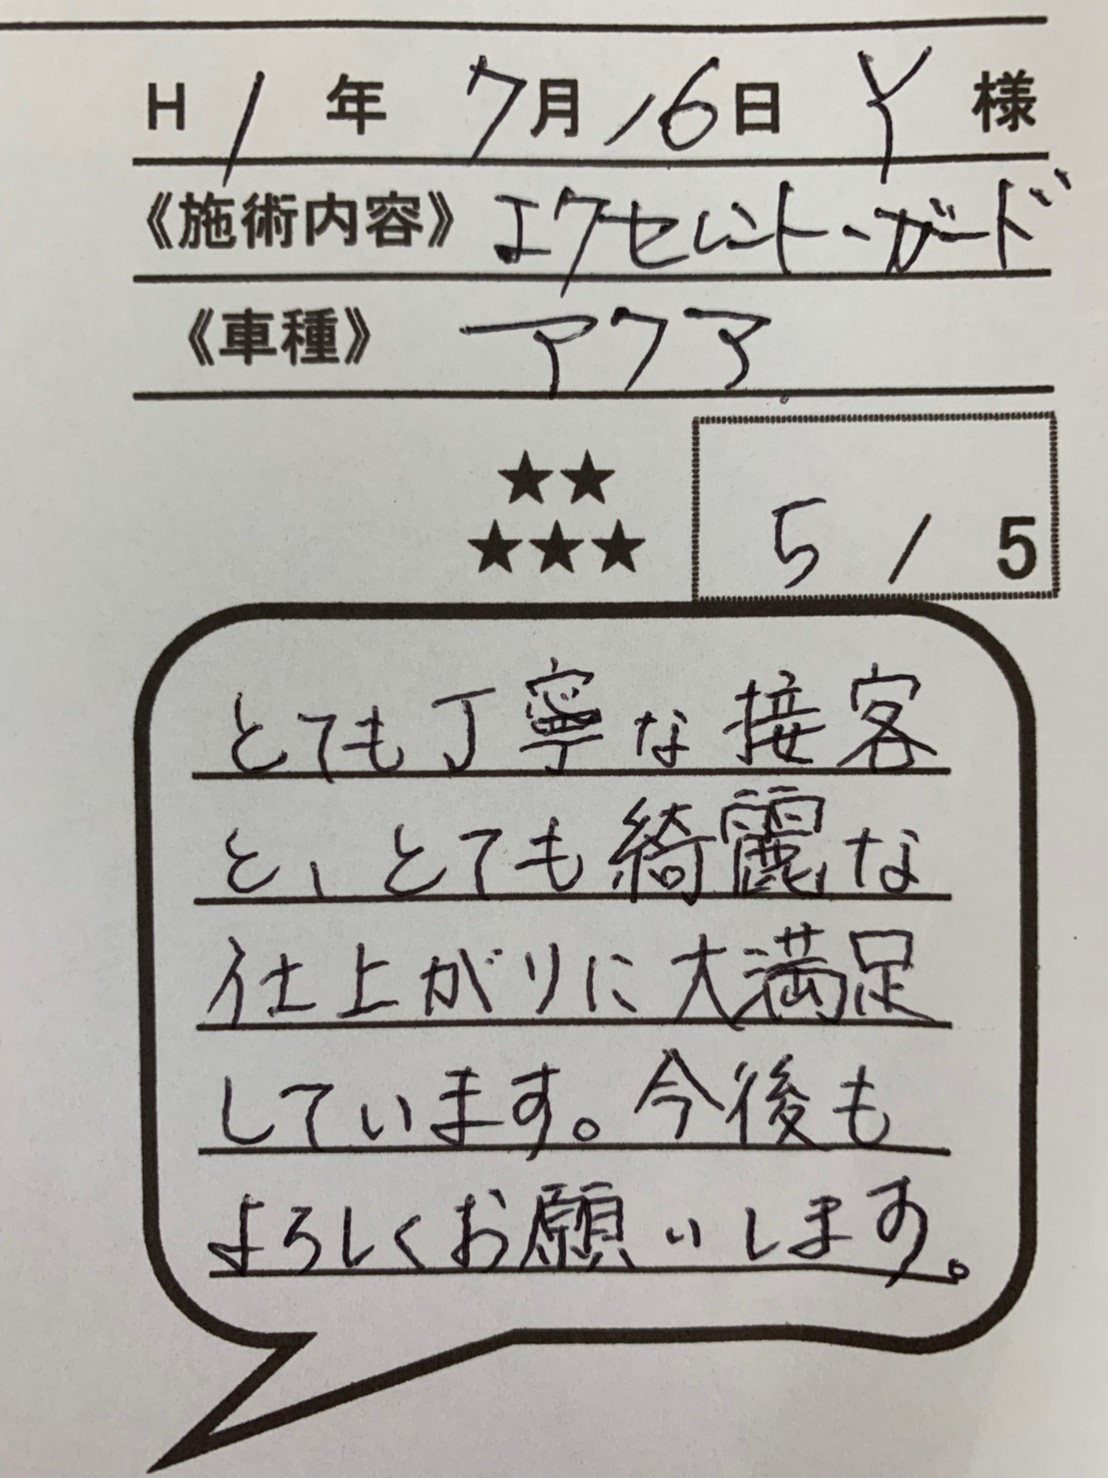 H 1 年 7月16日 Y 様
《施術内容》 エクセレント・ガード
《車種》 アクア
★★
★★★ 5 / 5
とても丁寧な接客
と、とても綺麗な
仕上がりに大満足
しています。今後も
よろしくお願いします。